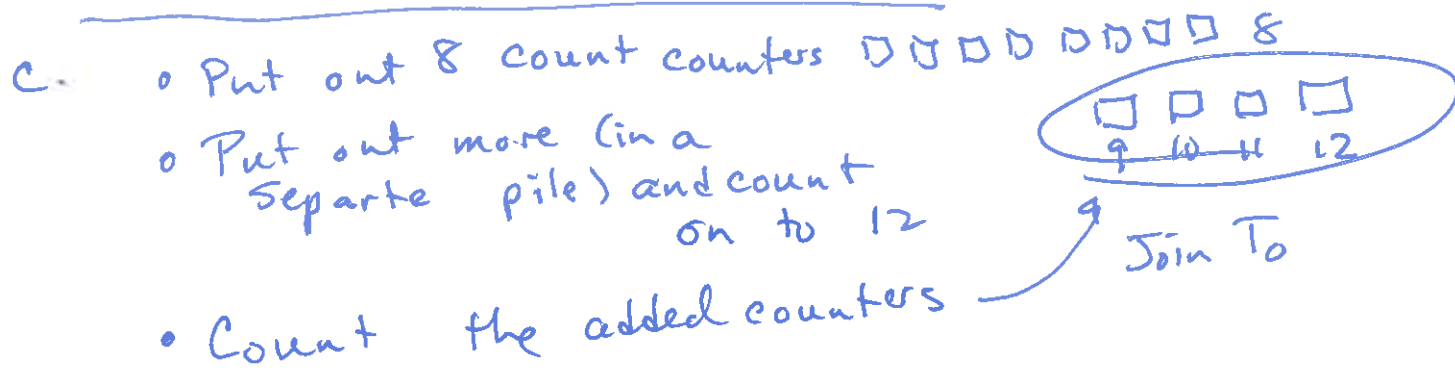 C. • Put out 8 count counters 8
• Put out more (in a
separte pile) and count
on to 12
9 10 11 12
Join To
• Count the added counters